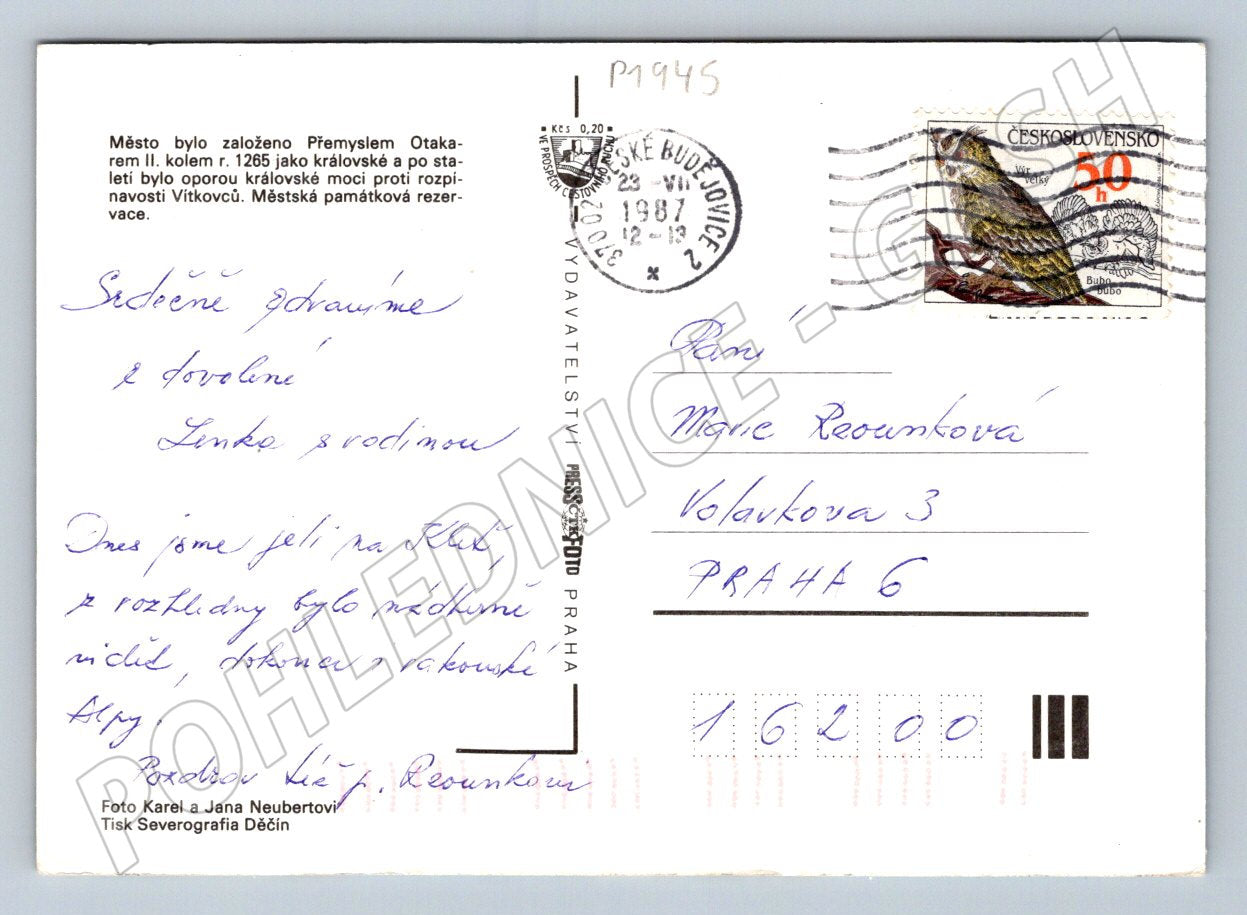 P1945
Město bylo založeno Přemyslem Otaka-
rem II. kolem r. 1265 jako královské a po sta-
letí bylo oporou královské moci proti rozpí-
navosti Vítkovců. Městská památková rezer-
vace.
Srdečně zdravíme
z dovolené
Lenka s rodinou
Dnes jsme jeli na Kleť,
z rozhledny bylo nádherně
vidět, dokonce i rakouské
Alpy.
Pozdrav též p. Reounkovi
Foto Karel a Jana Neubertovi
Tisk Severografia Děčín
VYDAVATELSTVÍ PRESSFOTO PRAHA
ČTK
Kčs 0,20
VE PROSPĚCH CESTOVNÍHO RUCHU
370 02 ČESKÉ BUDĚJOVICE 2
23 -VII
1987
12-13
ČESKOSLOVENSKO
50
h
Výr
velký
Bubo
bubo
Paní
Marie Reounková
Volavkova 3
PRAHA 6
162 00
POHLEDNICE - GUSH